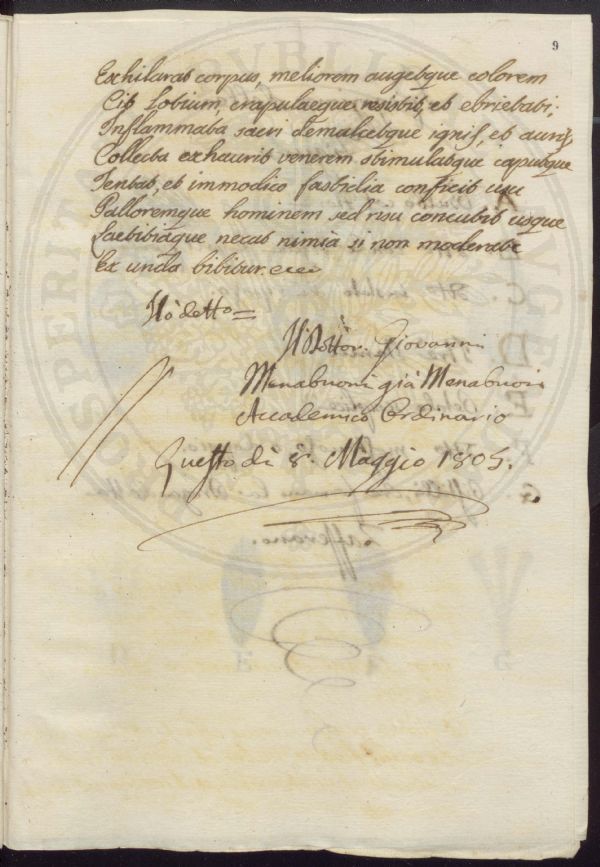 9
Exhilarat corpus, meliorem augetque colorem
Cit Lotium, crapulaeque resistit, et ebrietati;
Inflammata sacri demulcetque ignis, et auris
Collecta exhaurit venerem stimulatque caputque
Tentat, et immodico fastidia conficit usu
Palloremque hominem sed risu concubit usque
Laetitiaque necat nimia si non moderate
Ex unda bibitur.
Hò detto =
Il Dottor: Giovanni
Menabuoni già Menabuoi
Accademico Ordinario
Questo dì 8. Maggio 1805.